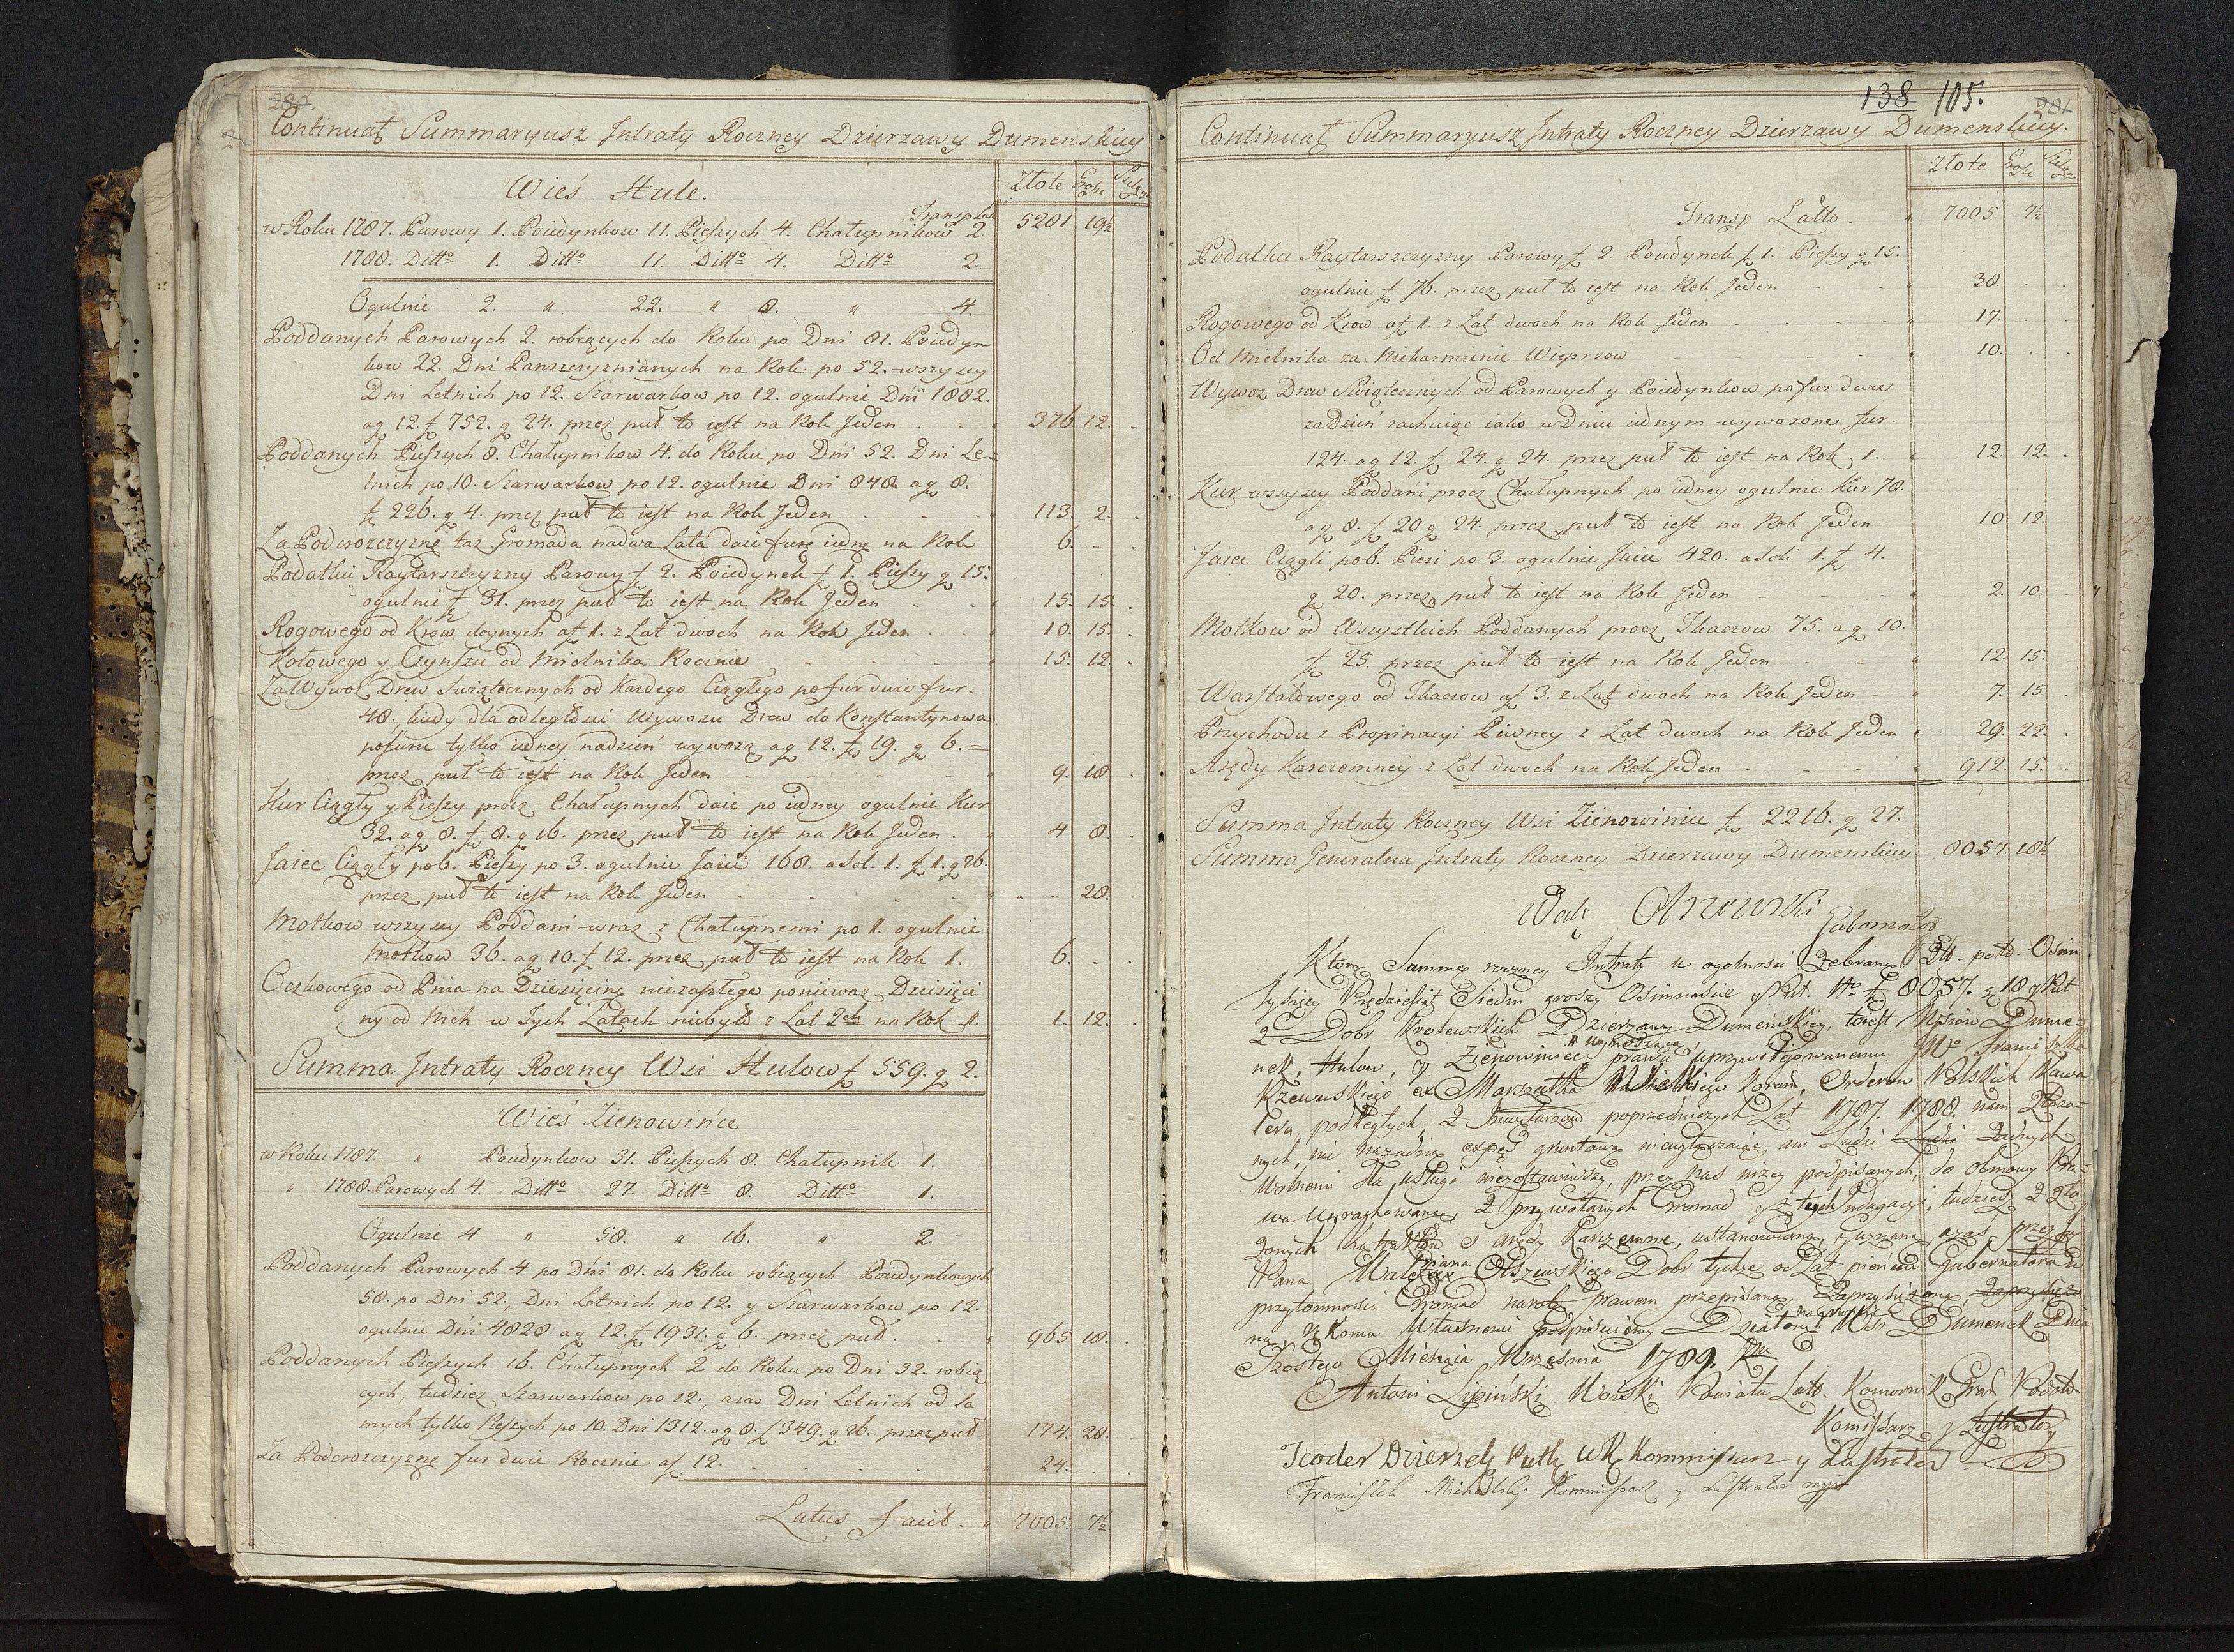 280.
Continuat Summaryusz Intraty Roczney Dzierzawy Dumenskiey
Złote Grosze Szeląg
Wieś Hule.
Transp Lat
w Roku 1787. Parowy 1. Poiedynkow 11. Pieszych 4. Chałupnikow 2 5281 19½
1788. Ditto 1. Ditto 11. Ditto 4. Ditto 2.
Ogulnie 2. " 22. " 8. " 4.
Poddanych Parowych 2. robiących do Roku po Dni 81. Poiedyn
kow 22. Dni Panszczyznianych na Rok po 52. wszyscy
Dni Letnich po 12. Szarwarkow po 12. ogulnie Dni 1882.
a g 12. f 752. g 24. przez puł to iest na Rok Jeden 376 12.
Poddanych Pieszych 8. Chałupnikow 4. do Roku po Dni 52. Dni Le=
tnich po 10. Szarwarkow po 12. ogulnie Dni 848. a g 8.
f 226. g 4. przez puł to iest na Rok Jeden 113 2.
Za Podorozczyznę taz Gromada na dwa Lata daie furę iednę na Rok 6.
Podatku Raytarszczyzny Parowy f 2. Poiedynek f 1. Pieszy g 15.
ogulnie f 31. przez puł to iest na Rok Jeden 15. 15.
Rogowego od Krow doynych a f 1. z Lat dwoch na Rok Jeden 10. 15.
Kołowego y Czynszu od Mielnika Rocznie 15. 12.
Za Wywoz Drew Swiątecznych od Kazdego Ciągłego po fur dwie fur.
48. kiedy dla odległości Wywozu Drew do Konstantynowa
po furze tylko iedney na dzień wywozą a g 12. f 19. g 6.=
przez puł to iest na Rok Jeden 9. 18.
Kur Ciągły y Pieszy procz Chałupnych daie po iedney ogulnie Kur
32. a g 8. f 8. g 16. przez puł to iest na Rok Jeden. 4 8.
Jaiec Ciągły po 6. Pieszy po 3. ogulnie Jaiec 168. a sol. 1. f 1. g 26.
przez puł to iest na Rok Jeden 28.
Motkow wszyscy Poddani wraz z Chałupnemi po 1. ogulnie
Motkow 36. a g 10. f 12. przez puł to iest na Rok 1. 6.
Oczkowego od Pnia na Dziesięcinę niezaszłego poniewaz Dziesięci
ny od Nich w Tych Latach niebyło z Lat 2ch na Rok 1. 1. 12.
Summa Intraty Roczney Wsi Hulow f 559. g 2.
Wieś Zienowińce
w Roku 1787. " Poiedynkow 31. Pieszych 8. Chałupnik 1.
" 1788. Parowych 4. Ditto 27. Ditto 8. Ditto 1.
Ogulnie 4 " 58. " 16. " 2.
Poddanych Parowych 4 po Dni 81. do Roku robiących Poiedynkowych
58. po Dni 52., Dni Letnich po 12. y Szarwarkow po 12.
ogulnie Dni 4828. a g 12. f 1931. g 6. przez puł. 965 18.
Poddanych Pieszych 16. Chałupnych 2. do Roku po Dni 32. robią
cych, tudziez Szarwarkow po 12., a zas Dni Letnich od sa
mych tylko Pieszych po 10. Dni 1312. a g 8. f 349. g 26. przez puł 174. 28.
Za Podorozczyznę fur dwie Rocznie a f 12. 24.
Latus facit. 7005. 7½
138 105.
281
Continuat Summaryusz Intraty Roczney Dzierzawy Dumenskiey.
Złote Grosze Szeląg
Transp Latto. 7005. 7½
Podatku Raytarszczyzny Parowy f 2. Poiedynek f 1. Pieszy g 15.
ogulnie f 76. przez puł to iest na Rok Jeden 38.
Rogowego od Krow a f 1. z Lat dwoch na Rok Jeden 17.
Od Mielnika za Niekarmienie Wieprzow 10.
Wywoz Drew Swiątecznych od Parowych y Poiedynkow po fur dwie
za Dzień rachuiąc iako w Dniu iednym wywozone fur.
124. a g 12. f 24. g 24. przez puł to iest na Rok 1. 12. 12.
Kur wszyscy Poddani procz Chałupnych po iedney ogulnie Kur 78.
a g 8. f 20 g 24. przez puł to iest na Rok Jeden 10 12.
Jaiec Ciągli po 6. Piesi po 3. ogulnie Jaiec 420. a soli 1. f 4.
g 20. przez puł to iest na Rok Jeden 2. 10.
Motkow od Wszystkich Poddanych procz Tkaczow 75. a g 10.
f 25. przez puł to iest na Rok Jeden 12. 15.
Warsztatowego od Tkaczow a f 3. z Lat dwoch na Rok Jeden 7. 15.
Przychodu z Propinacyi Piwney z Lat dwoch na Rok Jeden 29. 22.
Arędy Karczemney z Lat dwoch na Rok Jeden 912. 15.
Summa Intraty Roczney Wsi Zienowiniec f 2216. g 27.
Summa Generalna Intraty Roczney Dzierzawy Dumenskiey 8057. 18½
Wal Olszewski Gubernator
Ktorą Summę roczney Intraty w ogolności Zebraną Złł. pol. Osim
tysięcy Pędziesiąt Siedm groszy Osimnaście y Puł. No f 8057. g 18 y Puł
z Dobr Krolewskich Dzierzawy Dumeńskiey, to iest Wsiow Dume-
nek, Hulow, y Zienowiniec prawu uprzywilejowanemu JWo Franciszka
Rzewuskiego ex Marszałka Nadwornego Koron, Orderow Polskich Kawa
lera podległych, z Inwentarzow poprzedniczych Lat 1787. 1788. nam Złozo-
nych, nic na zadną expęs gruntową niewytrącaiąc, ani Ludzi Ludzi Zadnych
Wolnemi dla usługi niezostawiwszy, przez nas nizey podpisanych, do obmowy Pra-
wa Wyrachowaną, z przywołanych Gromad y z tych Indagacyi, tudziesz z Zło
zonych kontraktow o arędy Karczemne, ustanowioną, y uznaną, a zaś przez
Pana Waleryana Olszewskiego Dobr tychze od Lat pierwiu Gubernatora w
przytomności Gromad na rotę prawem przepisaną, Zaprzysięzoną,
na, Rękoma Własnemi podpisuiemy Działo się na gruncie Wsi Dumenek Dnia
Szostego Miesiąca Września 1789. Rku
Antoni Lipiński Woyski Powiatu Latt. Komornik Gran Podols-
Komissarz y Lustrator
Teodor Dzierzek Kommissarz y Lustrator
Franciszek Michalski Kommissarz y Lustrator